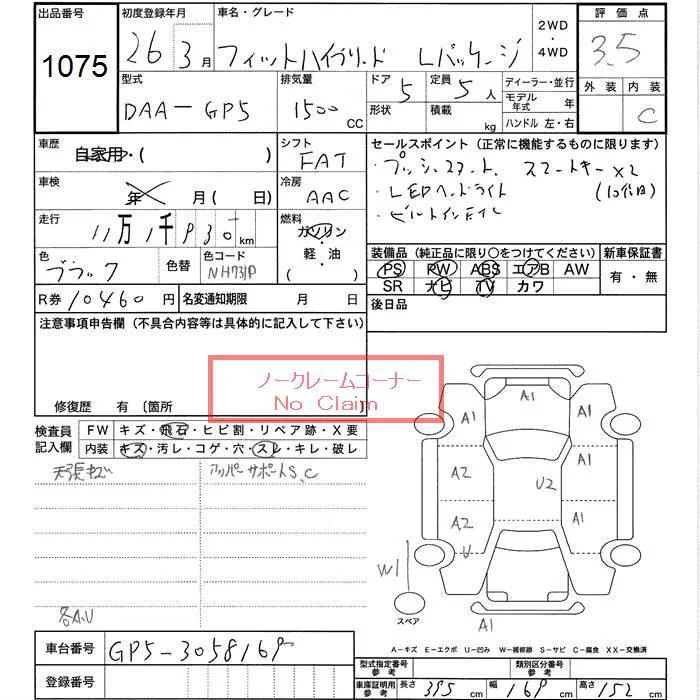 出品番号 初度登録年月 車名・グレード 2WD ・ 4WD 評価点
1075 26 3月 フィットハイブリッド Lパッケージ 3.5
型式 排気量 ドア 5 定員 5人 ディーラー・並行 外装 内装
DAA-GP5 1500 CC 形状 積載 kg モデル年式 年 C
ハンドル 左・右
車歴 自家用・( ) シフト FAT セールスポイント(正常に機能するものに限ります)
・プッシュスタート. スマートキー×2
車検 年 月(日) 冷房 AAC ・LEDヘッドライト
・ビルトインETC
走行 11万1千930 km 燃料 ガソリン・軽・油 ( )
色 ブラック 色替 色コード NH731P
装備品(純正品に限り○をつけてください) 新車保証書
PS PW ABS エアB AW 有・無
SR ナビ TV カワ
R券 10460円 名変通知期限 月 日 後日品
注意事項申告欄(不具合内容等は具体的に記入して下さい)
ノークレームコーナー
No Claim
修復歴 有(箇所 )
検査員記入欄 FW キズ・飛石・ヒビ割・リペア跡・X要
内装 キズ・汚レ・コゲ・穴・スレ・キレ・破レ
天張キズ アッパーサポートS、C
A1
A1 A1
A1
A2 U2
A2 A1
U
W1
スペア
A1
各A.U
A-キズ E-エクボ U-凹み W-補修跡 S-サビ C-腐食 XX-交換済
車台番号 GP5-3058169
登録番号
型式指定番号 参考 類別区分番号 参考
車庫証明用 参考 長さ 395cm 幅 169cm 高さ 152cm